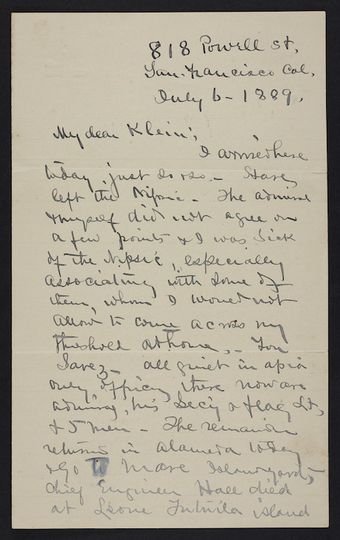 818 Powell St,
San. Francisco Cal,
July 6 - 1889.
My dear Klein;
I arrived here
today just so so - Have
left the Nipsic - The admiral
& myself did not agree on
a few points & I was sick
of the Nipsic, especially
associating with some of
them, whom I would not
allow to come across my
threshold at home, - You
all quiet in apia
only, officers there now are
admiral, his Sec'y & flag Lt,
& 5 men - The remainder
return in Alameda today
& go to Mare Island yard,
Chief Engineer Hall died
at Leone Tutuila island